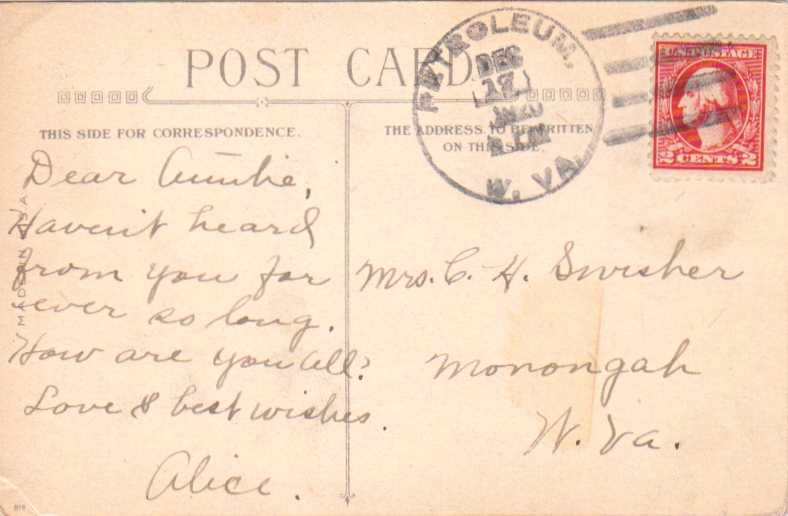 POST CARD
PETROLEUM,
DEC
17
W. VA.
U.S. POSTAGE
2 CENTS 2
THIS SIDE FOR CORRESPONDENCE.
THE ADDRESS TO BE WRITTEN
ON THIS SIDE.
MADE IN USA
Dear Auntie,
Haven't heard
from you for
ever so long.
How are you all?
Love & best wishes.
Alice.
Mrs. C. H. Swisher
Monongah
W. Va.